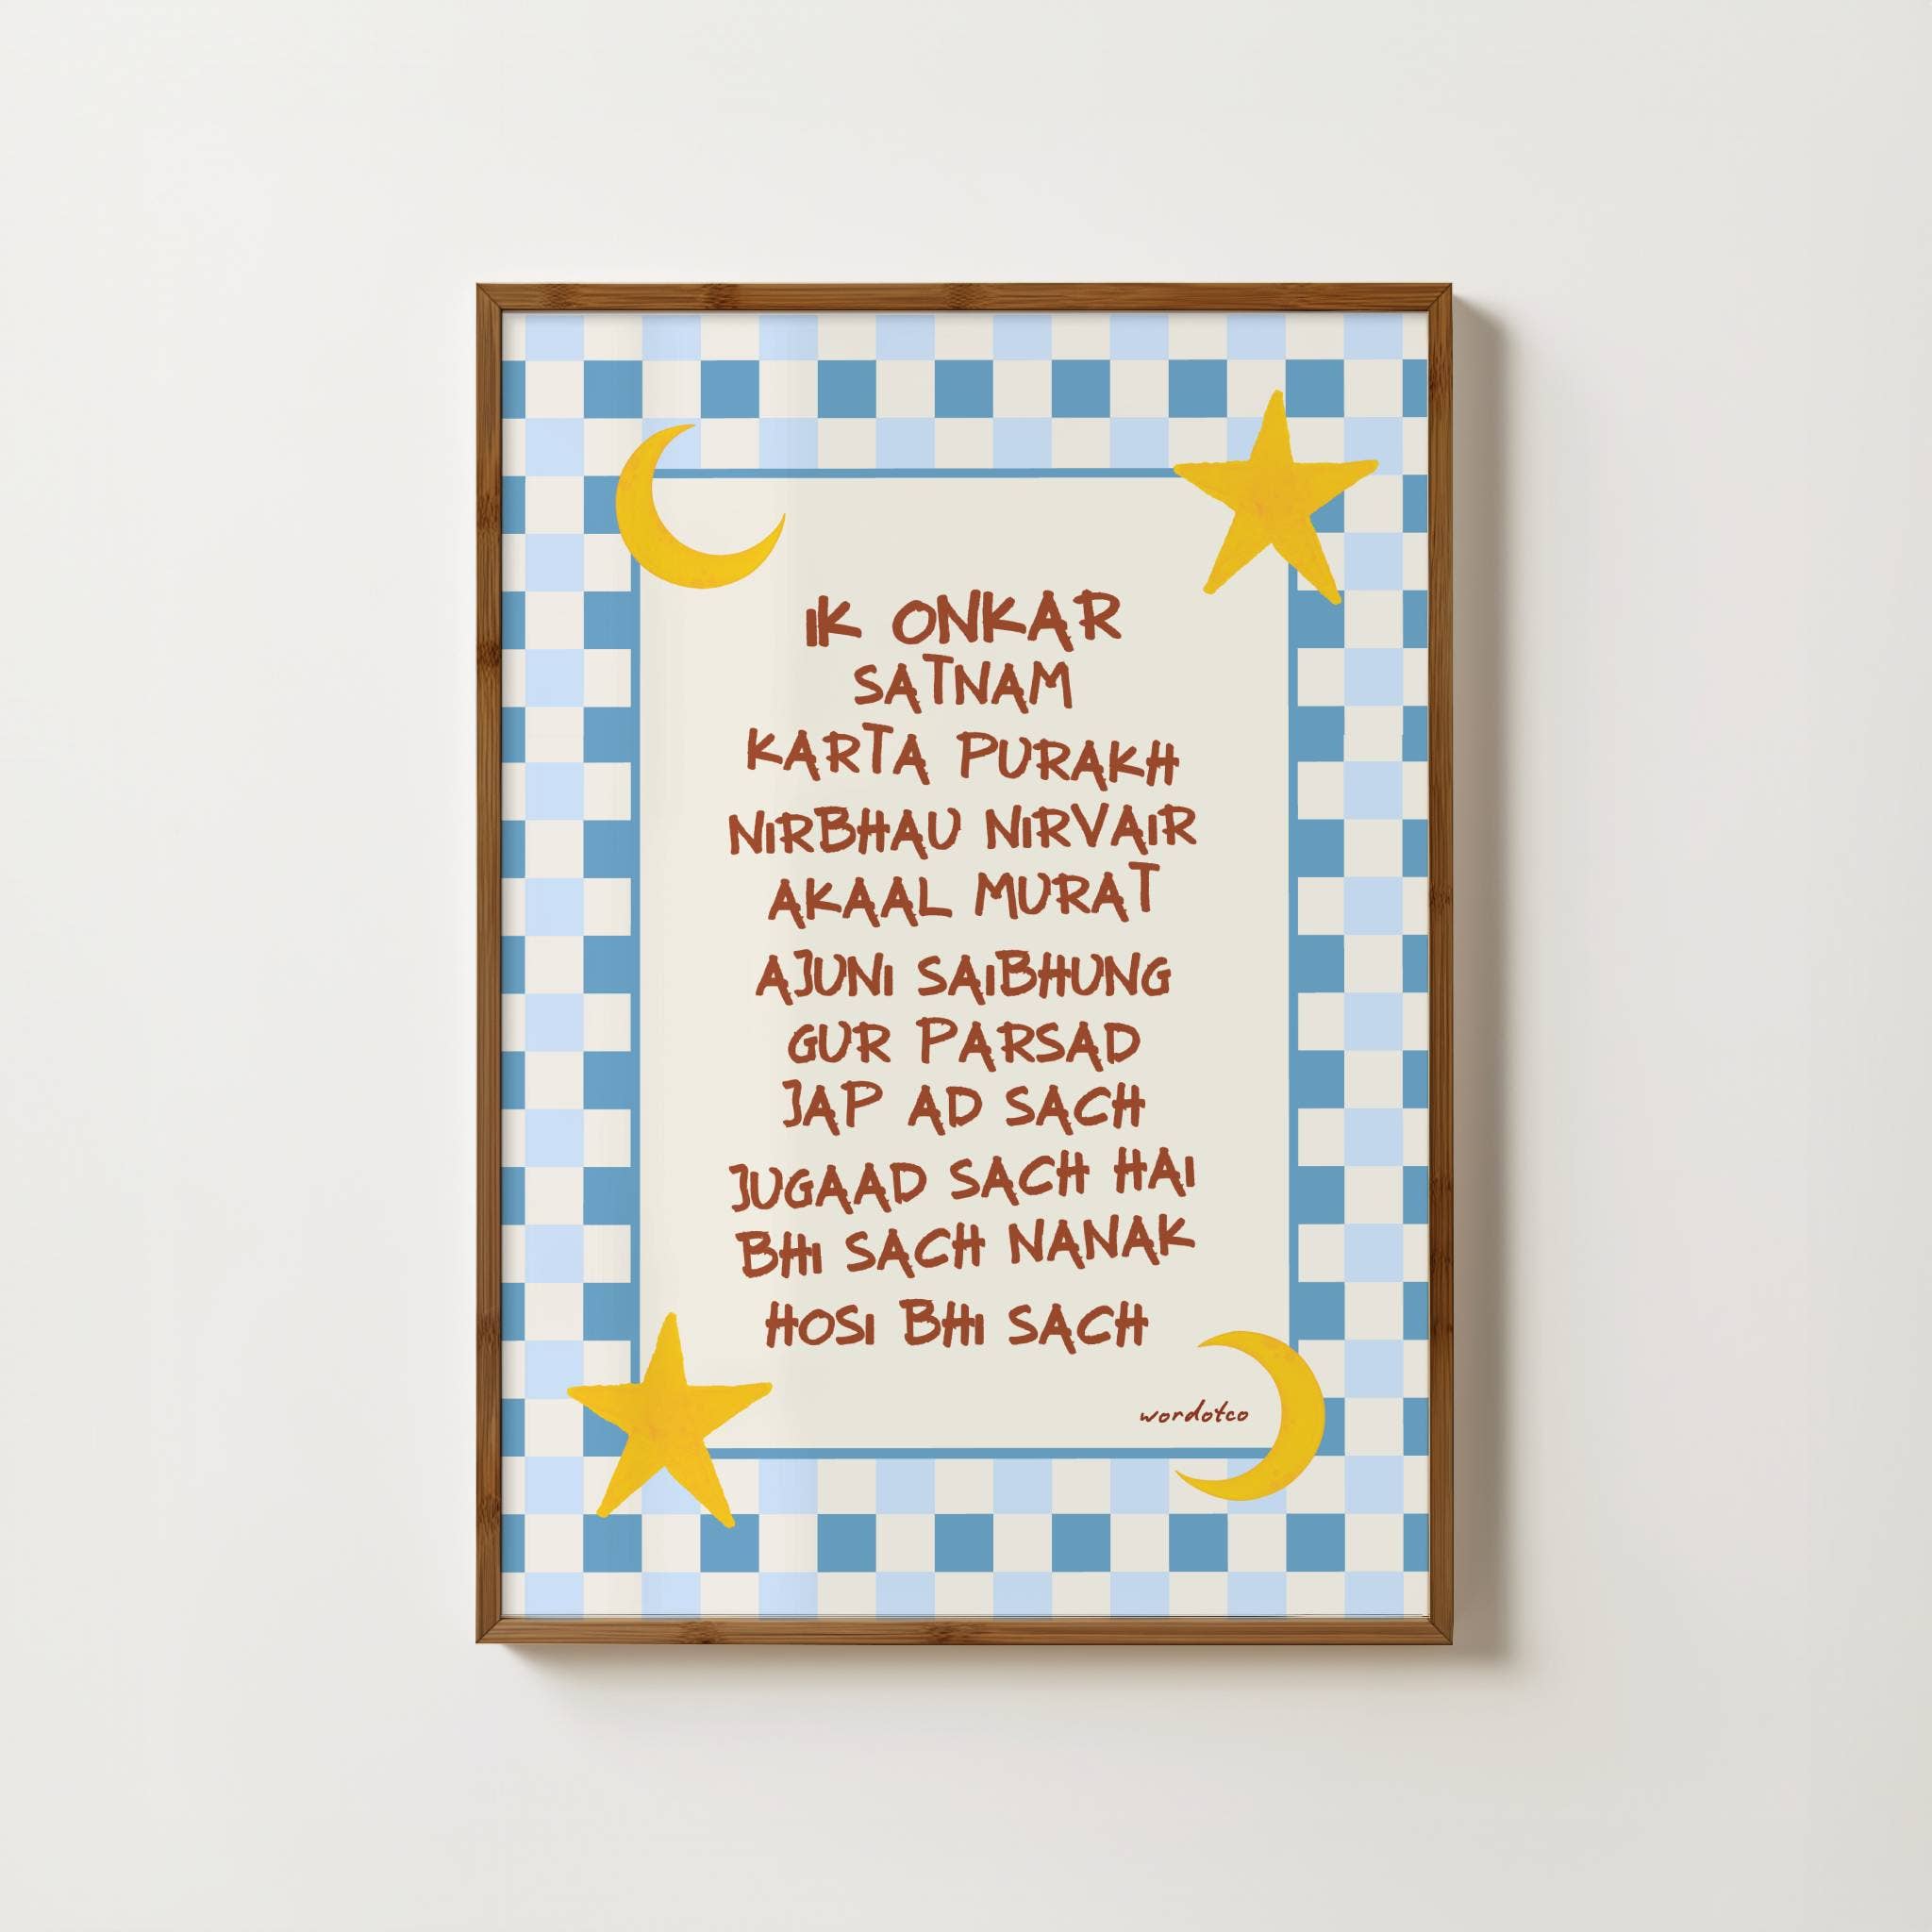 IK ONKAR
SATNAM
KARTA PURAKH
NIRBHAU NIRVAIR
AKAAL MURAT
AJUNI SAIBHUNG
GUR PARSAD
JAP AD SACH
JUGAAD SACH HAI
BHI SACH NANAK
HOSI BHI SACH
wordotco